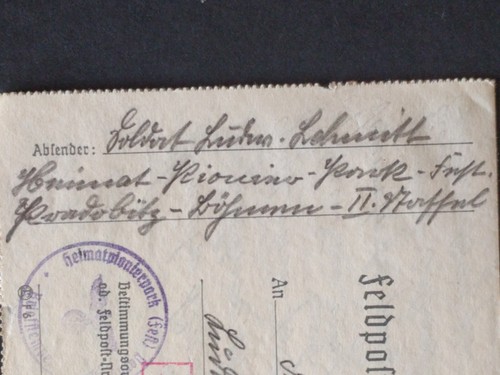 Absender: Soldat Ludw. Schmitt
Heimat-Pionier-Park-Fest.
Pradobitz-Böhmen-II. Staffel
Heimatpionierpark (Fest
Bestimmungsor
od. Feldpost-Nr
An
Feldpos